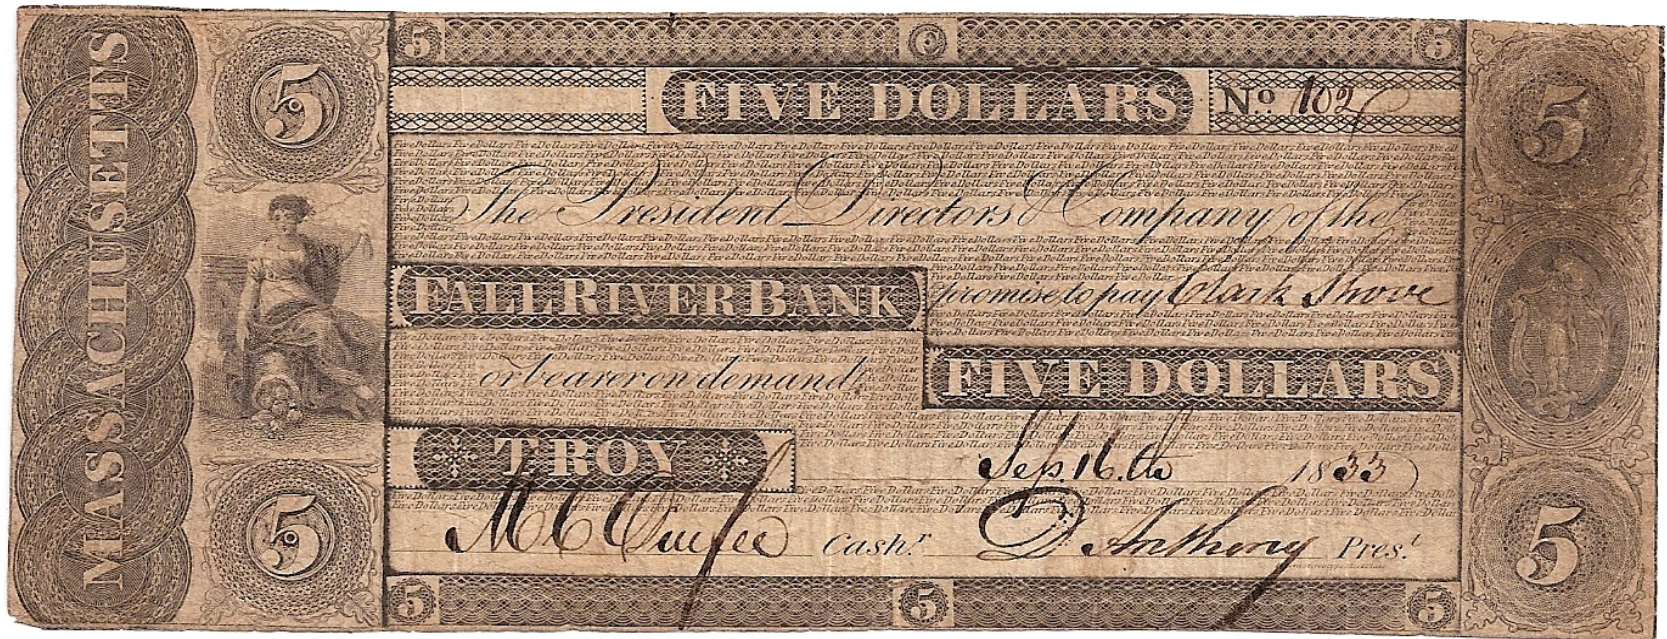 MASSACHUSETTS
5
5
5 5 5
FIVE DOLLARS
No 102
The President Directors & Company of the
FALL RIVER BANK
promise to pay Clark Shove
or bearer on demand
FIVE DOLLARS
TROY
Sep. 16.th 1833
M C Durfee Cashr
D Anthony Prest
5 5 5
5
5